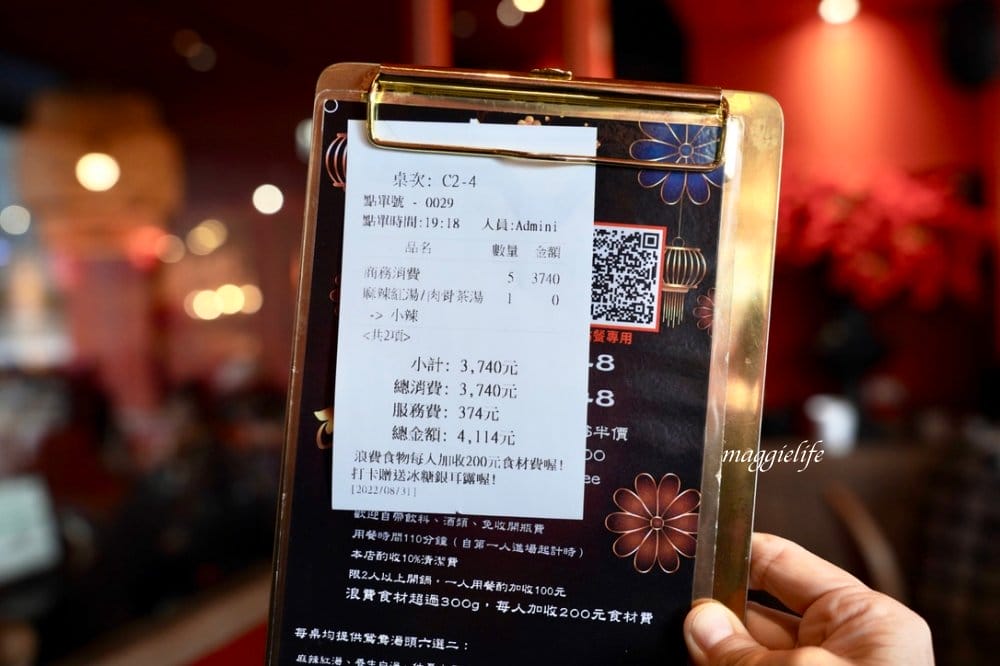 桌次: C2-4
點單號 - 0029
點單時間:19:18 人員:Admini
品名 數量 金額
商務消費 5 3740
麻辣紅湯/肉骨茶湯 1 0
-> 小辣
<共2項>
小計: 3,740元
總消費: 3,740元
服務費: 374元
總金額: 4,114元
浪費食物每人加收200元食材費喔!
打卡贈送冰糖銀耳露喔!
[2022/08/31]
餐專用
-8
-8
半價
00
ee
maggielife
歡迎自帶飲料、酒類、免收開瓶費
用餐時間110分鐘（自第一人進場起計時）
本店酌收10%清潔費
限2人以上開鍋，一人用餐酌加收100元
浪費食材超過300g，每人加收200元食材費
每桌均提供鴛鴦湯頭六選二：
麻辣紅湯、養生白湯、